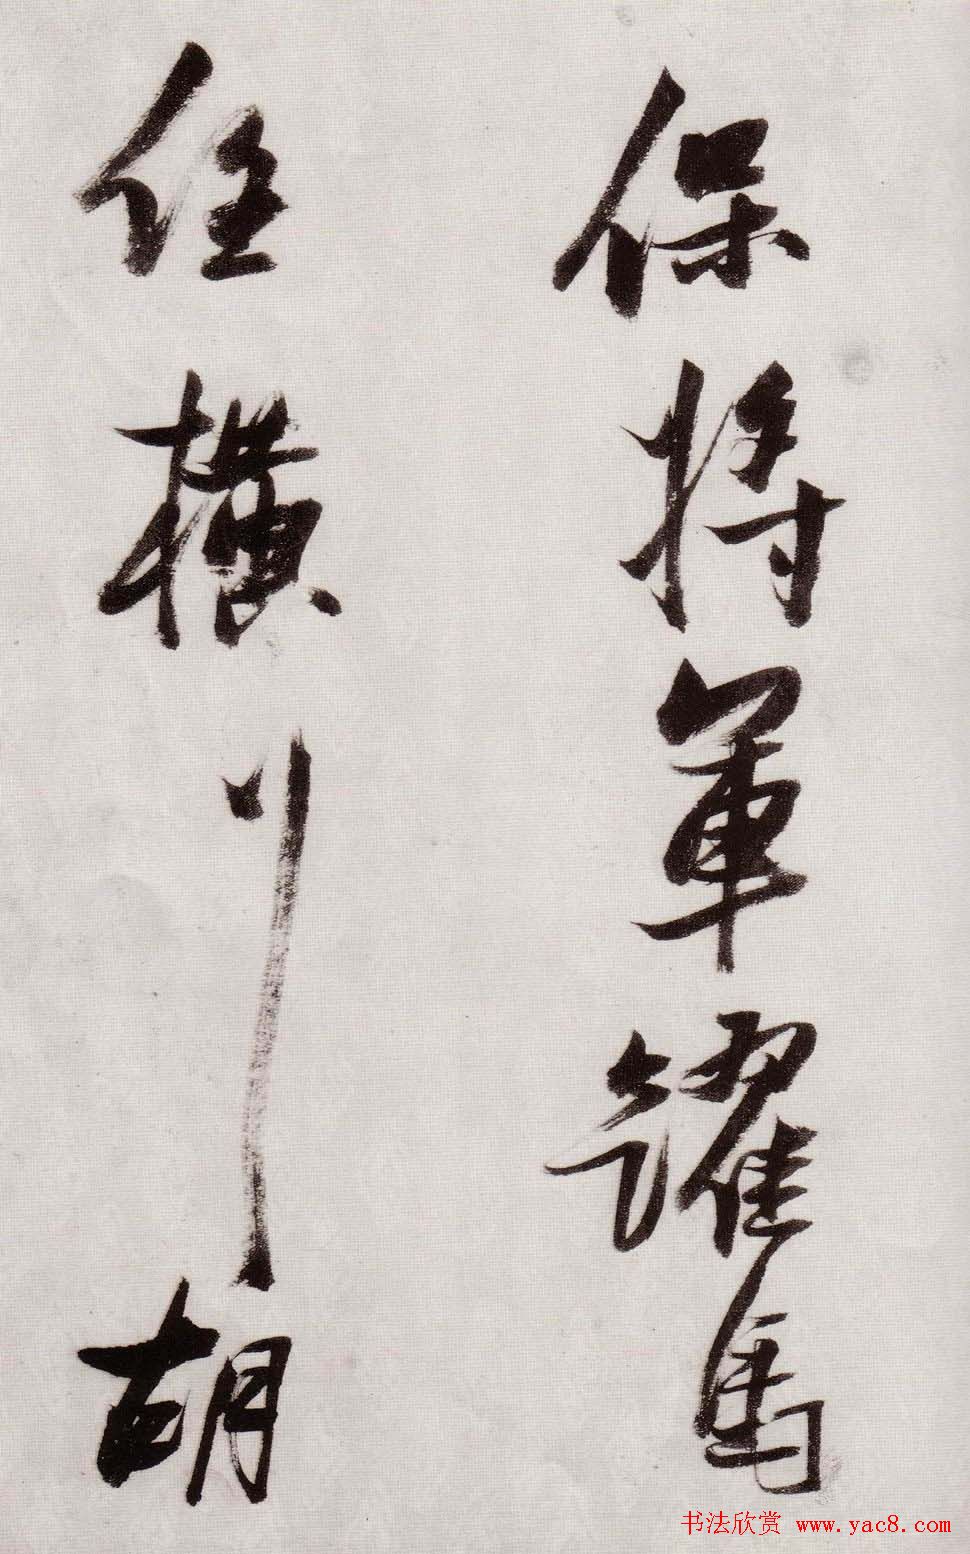 保將軍躍馬
任横行胡
书法欣赏 www.yac8.com